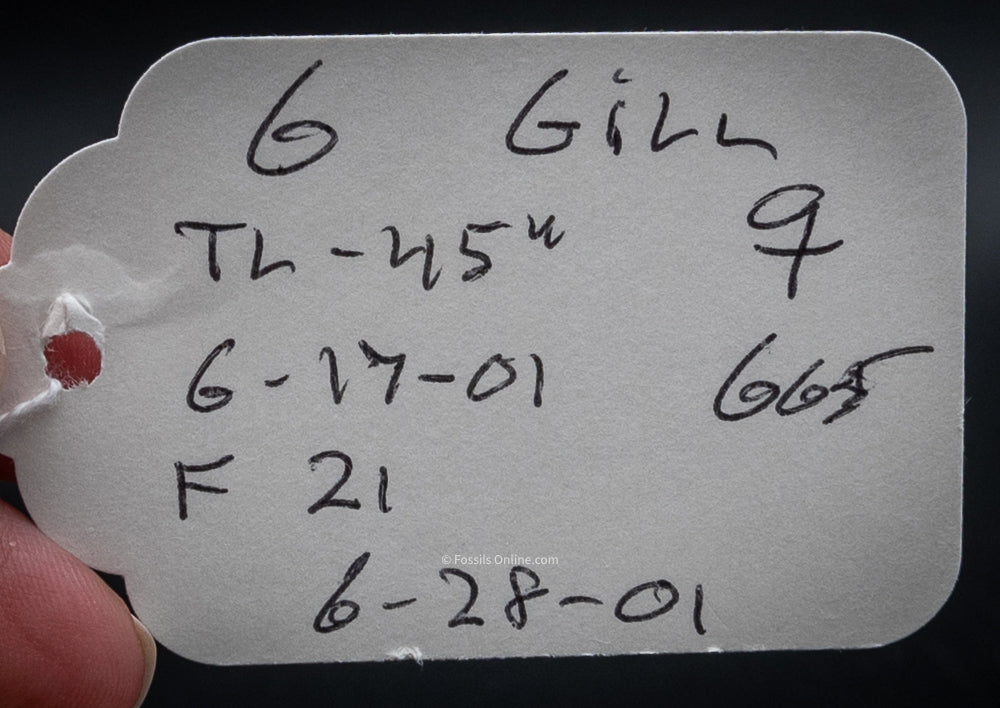 6 GiLL
TL - 45" ♀
6 - 17 - 01 665
F 21
© Fossils Online.com
6 - 28 - 01